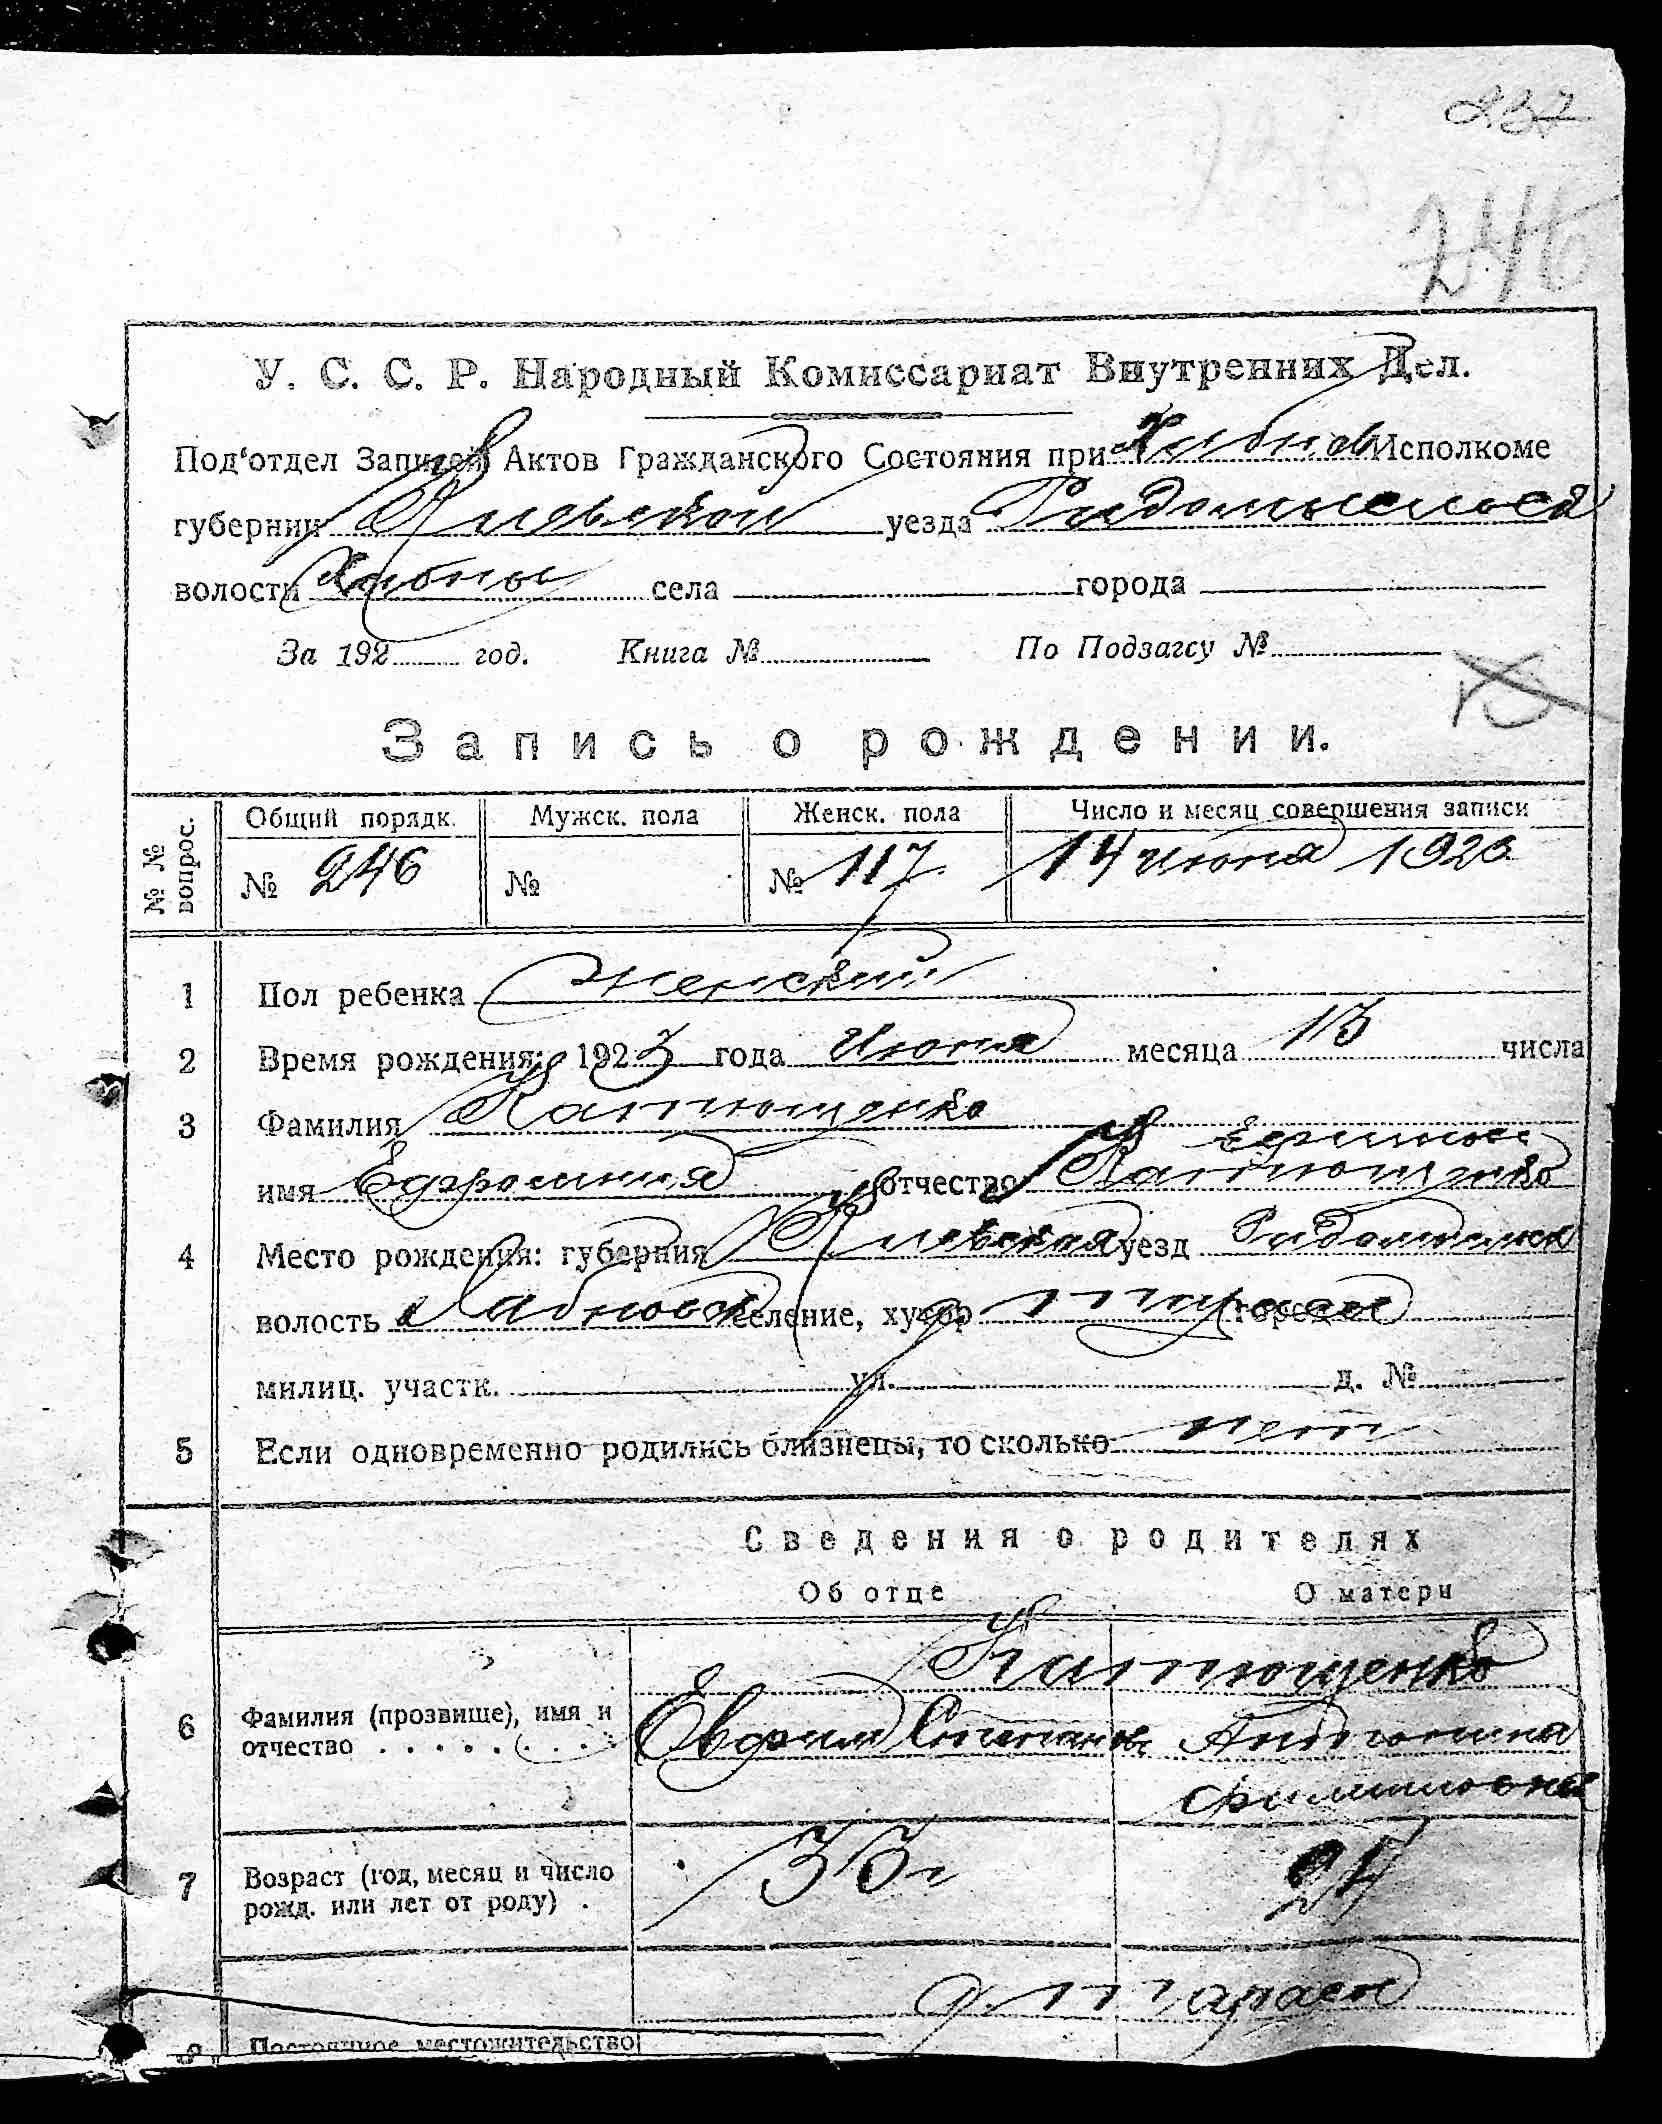 237
246
У. С. С. Р. Народный Комиссариат Внутренних Дел.
Под'отдел Записей Актов Гражданского Состояния при Хабнов Исполкоме
губернии Киевской уезда
волости Хабны села города
За 192 год. Книга № По Подзагсу №
Запись о рождении.
№ № вопрос. Общий порядк. Мужск. пола Женск. пола Число и месяц совершения записи
№ 246 № № 117 14 июня 1923
1 Пол ребенка женский
2 Время рождения: 1923 года Июня месяца 13 числа
3 Фамилия Катющенко
Ефимов
имя Ефросиния отчество Катющенко
4 Место рождения: губерния Киевская уезд Радомысльск
волость Хабновск селение, хутор
милиц. участк. ул. д. №
5 Если одновременно родились близнецы, то сколько нет
Сведения о родителях
Об отце О матери
Катющенко
6 Фамилия (прозвище), имя и отчество Евфим Степанов Антонина
Филиповна
7 Возраст (год, месяц и число рожд. или лет от роду) 33 г 24
8 Постоянное местожительство